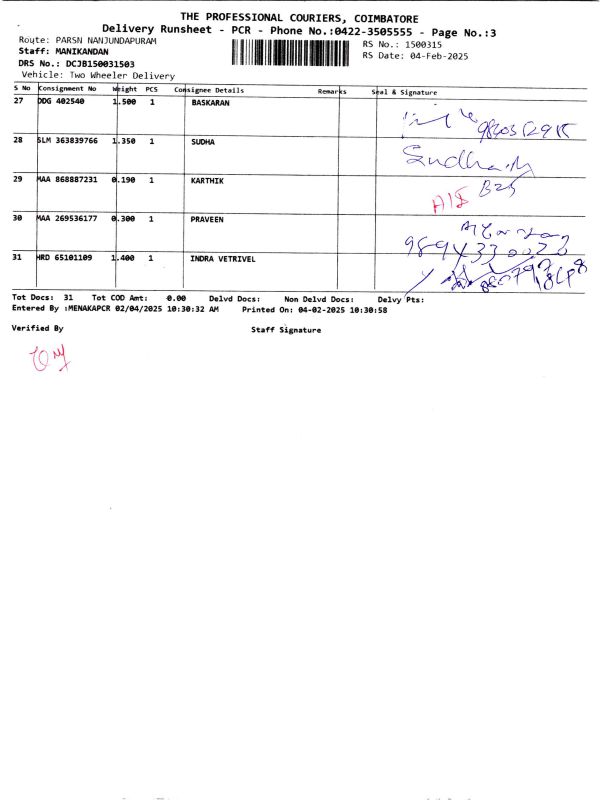 THE PROFESSIONAL COURIERS, COIMBATORE
Delivery Runsheet - PCR - Phone No.:0422-3505555 - Page No.:3
Route: PARSN NANJUNDAPURAM
RS No.: 1500315
Staff: MANIKANDAN
RS Date: 04-Feb-2025
DRS No.: DCJB150031503
Vehicle: Two Wheeler Delivery
S No Consignment No Weight PCS Consignee Details Remarks Seal & Signature
27 DDG 402540 1.500 1 BASKARAN
28 SLM 363839766 1.350 1 SUDHA Sudha.M
29 MAA 868887231 0.190 1 KARTHIK
30 MAA 269536177 0.300 1 PRAVEEN
31 HRD 65101109 1.400 1 INDRA VETRIVEL
Tot Docs: 31 Tot COD Amt: 0.00 Delvd Docs: Non Delvd Docs: Delvy Pts:
Entered By :MENAKAPCR 02/04/2025 10:30:32 AM Printed On: 04-02-2025 10:30:58
Verified By Staff Signature